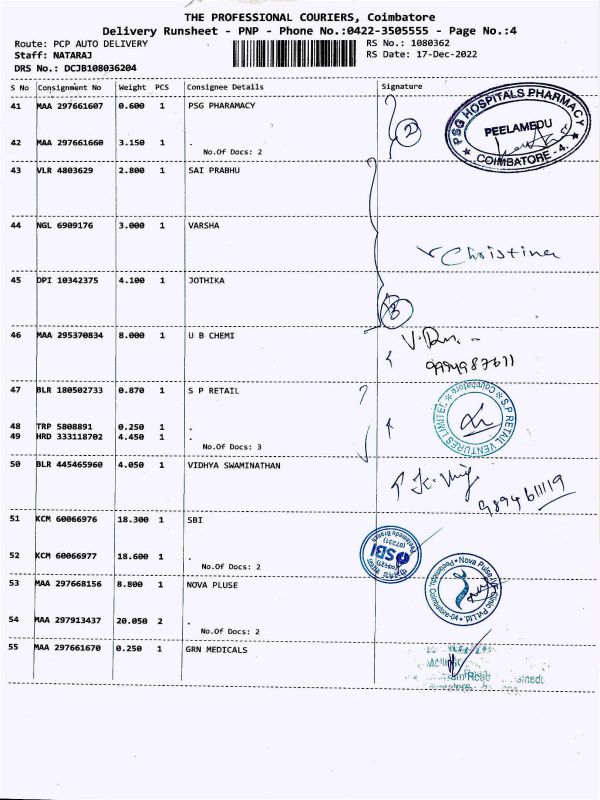 THE PROFESSIONAL COURIERS, Coimbatore
Delivery Runsheet - PNP - Phone No.:0422-3505555 - Page No.:4
Route: PCP AUTO DELIVERY
RS No.: 1080362
Staff: NATARAJ
RS Date: 17-Dec-2022
DRS No.: DCJB108036204
S No Consignment No Weight PCS Consignee Details Signature
41 MAA 297661607 0.600 1 PSG PHARAMACY
PSG HOSPITALS PHARMACY
PEELAMEDU
COIMBATORE - 4.
2
42 MAA 297661660 3.150 1 .
No.Of Docs: 2
43 VLR 4803629 2.800 1 SAI PRABHU
44 NGL 6909176 3.000 1 VARSHA
Christina
45 DPI 10342375 4.100 1 JOTHIKA
46 MAA 295370834 8.000 1 U B CHEMI
47 BLR 180502733 0.870 1 S P RETAIL
S.P RETAIL VENTURES LIMITED
Coimbatore
48 TRP 5808891 0.250 1 .
49 HRD 333118702 4.450 1 .
No.Of Docs: 3
50 BLR 445465960 4.050 1 VIDHYA SWAMINATHAN
51 KCM 60066976 18.300 1 SBI
SBI
52 KCM 60066977 18.600 1 .
No.Of Docs: 2
53 MAA 297668156 8.800 1 NOVA PLUSE
Nova Pulse IVF Clinic Pvt Ltd.
Peelamedu, Coimbatore-04
54 MAA 297913437 20.050 2 .
No.Of Docs: 2
55 MAA 297661670 0.250 1 GRN MEDICALS